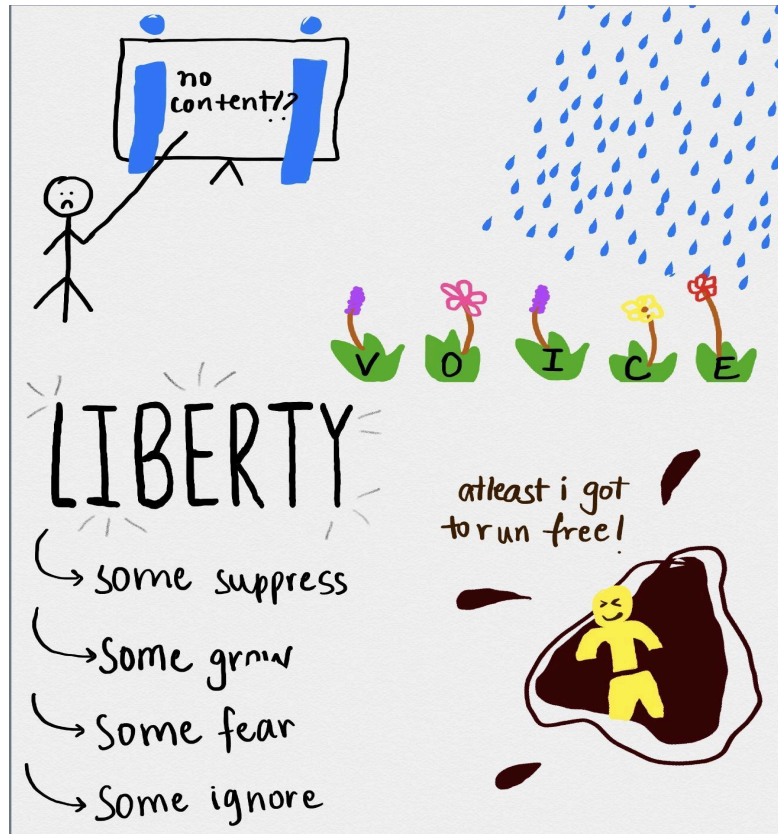 no
content!?
V O I C E
LIBERTY
some suppress
some grow
some fear
some ignore
atleast i got
to run free!